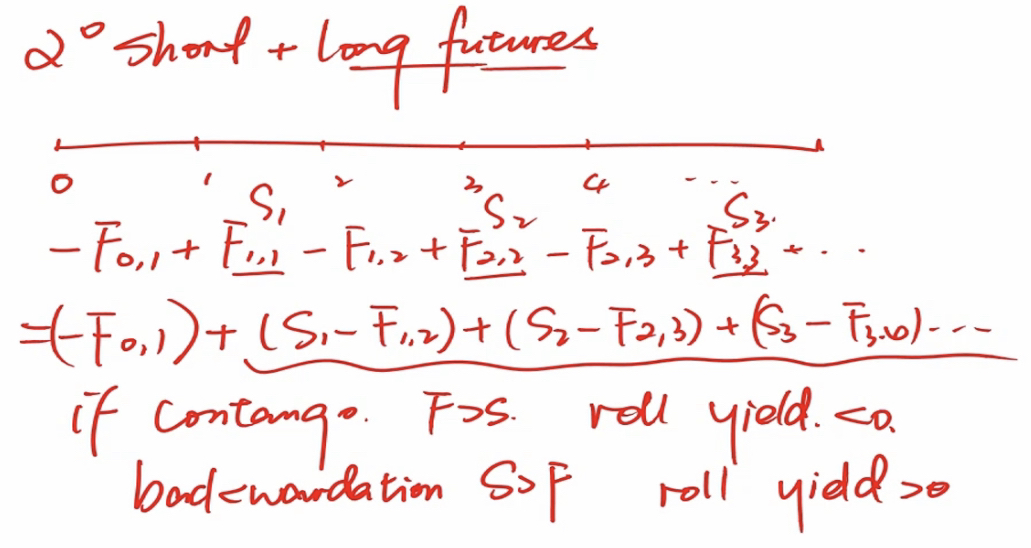 2° short + long futures
0 1 2 3 4 ...
S₁ S₂ S₃.
- F₀,₁ + F₁,₁ - F₁,₂ + F₂,₂ - F₂,₃ + F₃,₃ + ...
=(-F₀,₁) + (S₁ - F₁,₂) + (S₂ - F₂,₃) + (S₃ - F₃,₄) ...
if contango. F>S. roll yield. <0.
backwardation S>F roll yield >0